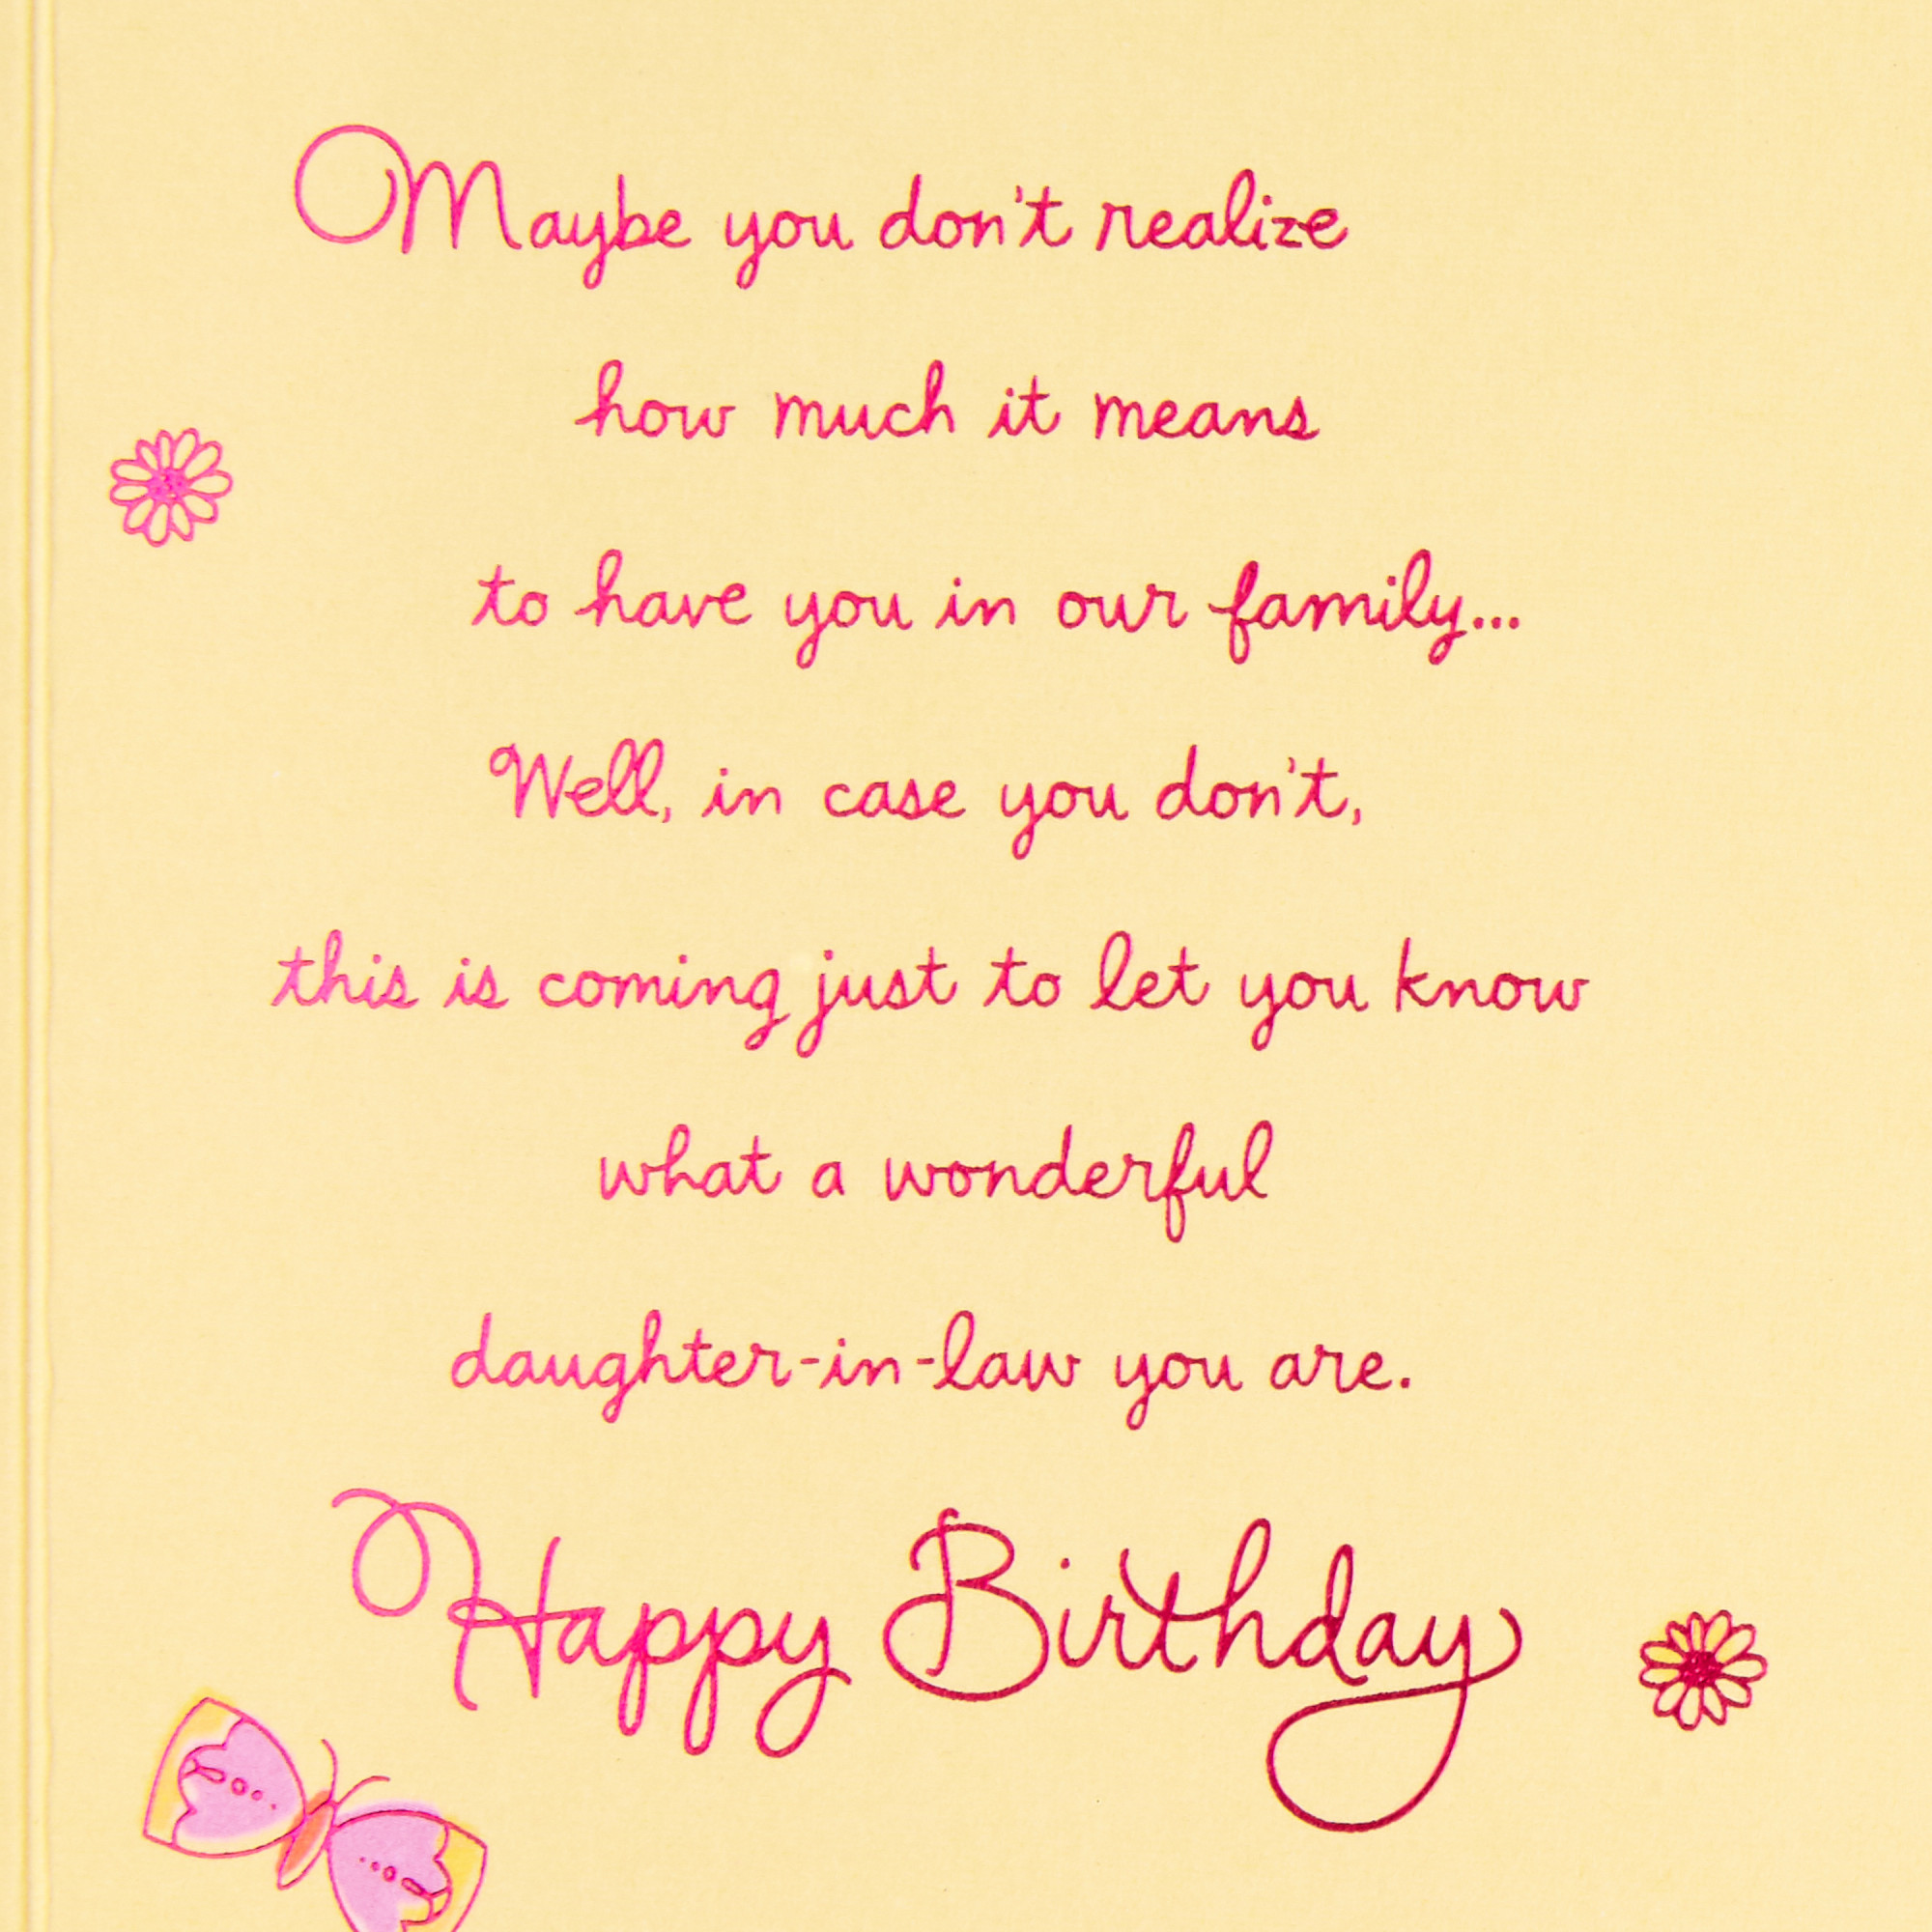 Maybe you don't realize
how much it means
to have you in our family...
Well, in case you don't,
this is coming just to let you know
what a wonderful
daughter-in-law you are.
Happy Birthday